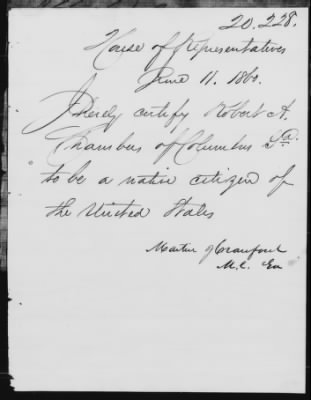 20.228.
House of Representatives
June 11. 1860.
I herely certify Robert A.
Chambers of Columbus Ga.
to be a native citizen of
the United States
Martin J Crawford
M.C. Ga